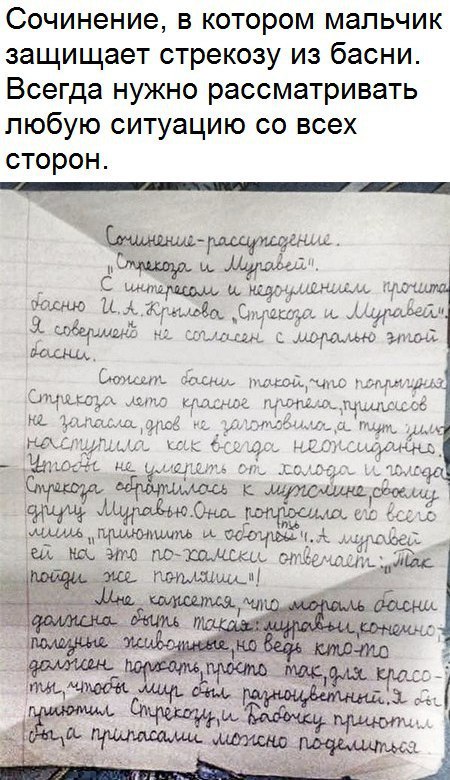 Сочинение, в котором мальчик
защищает стрекозу из басни.
Всегда нужно рассматривать
любую ситуацию со всех
сторон.
Сочинение-рассуждение.
„Стрекоза и Муравей".
С интересом и недоумением прочита
басню И.А.Крылова „Стрекоза и Муравей".
Я совершенно не согласен с моралью этой
басни.
Сюжет басни такой, что попрыгунья
Стрекоза лето красное пропела, припасов
не запасла, дров не заготовила, а тут зима
наступила как всегда неожиданно.
Чтобы не умереть от холода и голода
Стрекоза обратилась к мужчине, своему
другу Муравью. Она попросила его всего
лишь „приютить и обогреть". А муравей
ей на это по-хамски отвечает: „Так
пойди же попляши"!
Мне кажется, что мораль басни
должна быть такая: муравьи, конечно,
полезные животные, но ведь кто-то
должен порхать, просто так, для красо-
ты, чтобы мир был разноцветный. Я бы
приютил Стрекозу, и Бабочку приютил
бы, а припасами можно поделиться